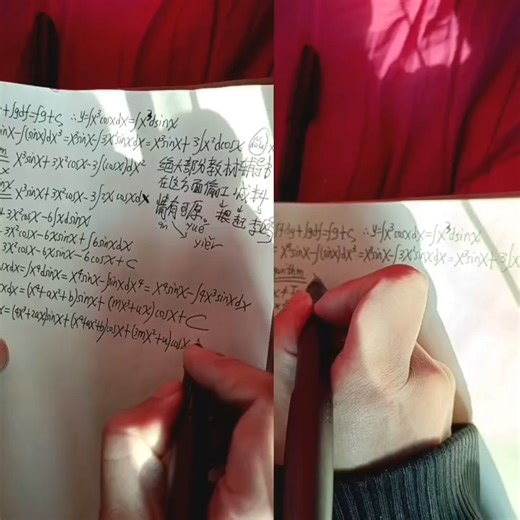 +∫gdf=fg+C ∴y=∫x³cosxdx=∫x³dsinx
sinx-∫(sinx)dx³=x³sinx-∫3x²sinxdx=x³sinx+3∫x²dcosx
x³sinx+3x²cosx-3∫(cosx)dx²
x³sinx+3x²cosx-3∫2xcosxdx
+3x²cosx-6∫xdsinx
3x²cosx-6xsinx+∫6sinxdx
3x²cosx-6xsinx-6cosx+C
sxdx=∫x⁴dsinx=x⁴sinx-∫sinxdx⁴=x⁴sinx-∫4x³sinxdx
xdx=(x⁴+ax²+b)sinx+(mx³+ux)cosx+C
=(4x³+2ax)sinx+(x⁴+ax²+b)cosx+(3mx²+u)cosx
绝大部分教材辅导书
在这方面偏
情有可原
yuè
yīer
+∫gdf=fg+C ∴y=∫x³cosxdx=∫x³dsinx
=x³sinx-∫(sinx)dx³=x³sinx-∫3x²sinxdx=x³sinx+3∫x